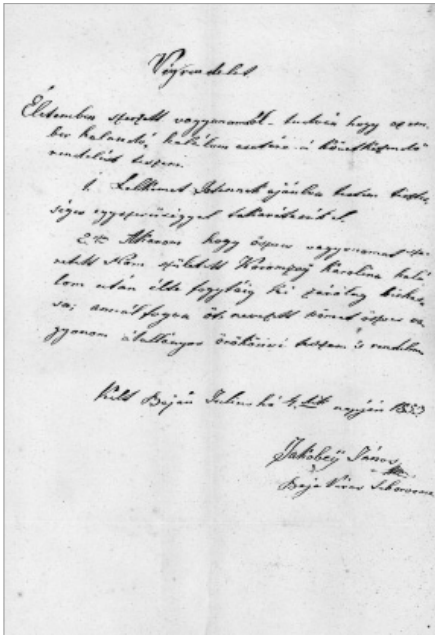 Végrendelet
Életemben szerzett vagyonomról - tudva hogy az em-
ber halandó, halálom esetére a következendő
rendelést teszem
1. Lelkemet Istennek ajánlva testem tisztes-
séges egyszerűséggel takaríttassék el.
2. Akarom hogy összes vagyonomat sze-
retett Nőm született Korompay Karolina halá-
lom után élte fogytáig ki zárólag birhas-
sa; annál fogva őt nevezett nőmet összes va-
gyonom általányos örökösévé teszem is rendelem
Kelt Baján Julius hó 4. napján 1853
Jakobcy János
Baja Város